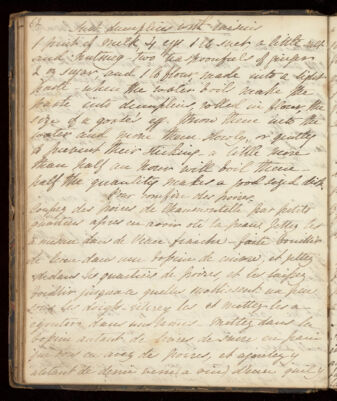 Suet dumplins with raisins
1 pint of milk 4 eggs 1 lb suet a little salt
and nutmeg two tea spoonfuls of ginger
2 oz sugar and 1 lb flour, made into a light
paste when the water boil make the
paste into dumplins, rolled in flour, the
size of a goose egg throw them into the
water and move them slowly, or gently
to prevent their sticking a little more
than half an hour will boil them
half the quantity makes a good sized dish
Pour confire des poires
des poires de par petits
quartiers apres en avoir oté la peau jettez les
a mesure dans de l'eau fraiche - faite bouillir
de l'eau dans une de cuivre, et jettez
dedans les quartiers de poires, et les laissez
bouillir jusqu'a qu'elles un peu
les doigts les et mettez les a
egoutter dans Mettez dans la
autant de livres de sucre en pain
que vous en avez de poires, et ajoutez y
autant de d'eau qu'il y